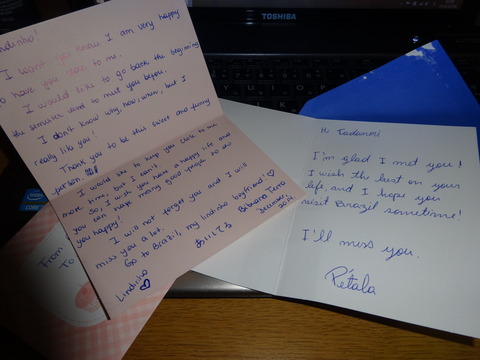 TOSHIBA
Lindinho!
I want you know I am very happy
to have you close to me.
I would like to go back the beginning
the semester to meet you before.
I don't know why, how, when, but I
really like you!
Thank you to be this sweet and funny
person
I would like to keep you close to me
more time, but I can't.
you. So, I wish you have a happy life and
can have many good people to do
you happy!
I will not forget you and I will
miss you a lot.
Go to Brazil, my lindinho boyfriend! ♡
あいしてる
Lindinho ♡
December
2014
Hi Tadanori
I'm glad I met you!
I wish the best on your
life, and I hope you
visit Brazil sometime!
I'll miss you.
Pétala
From
To